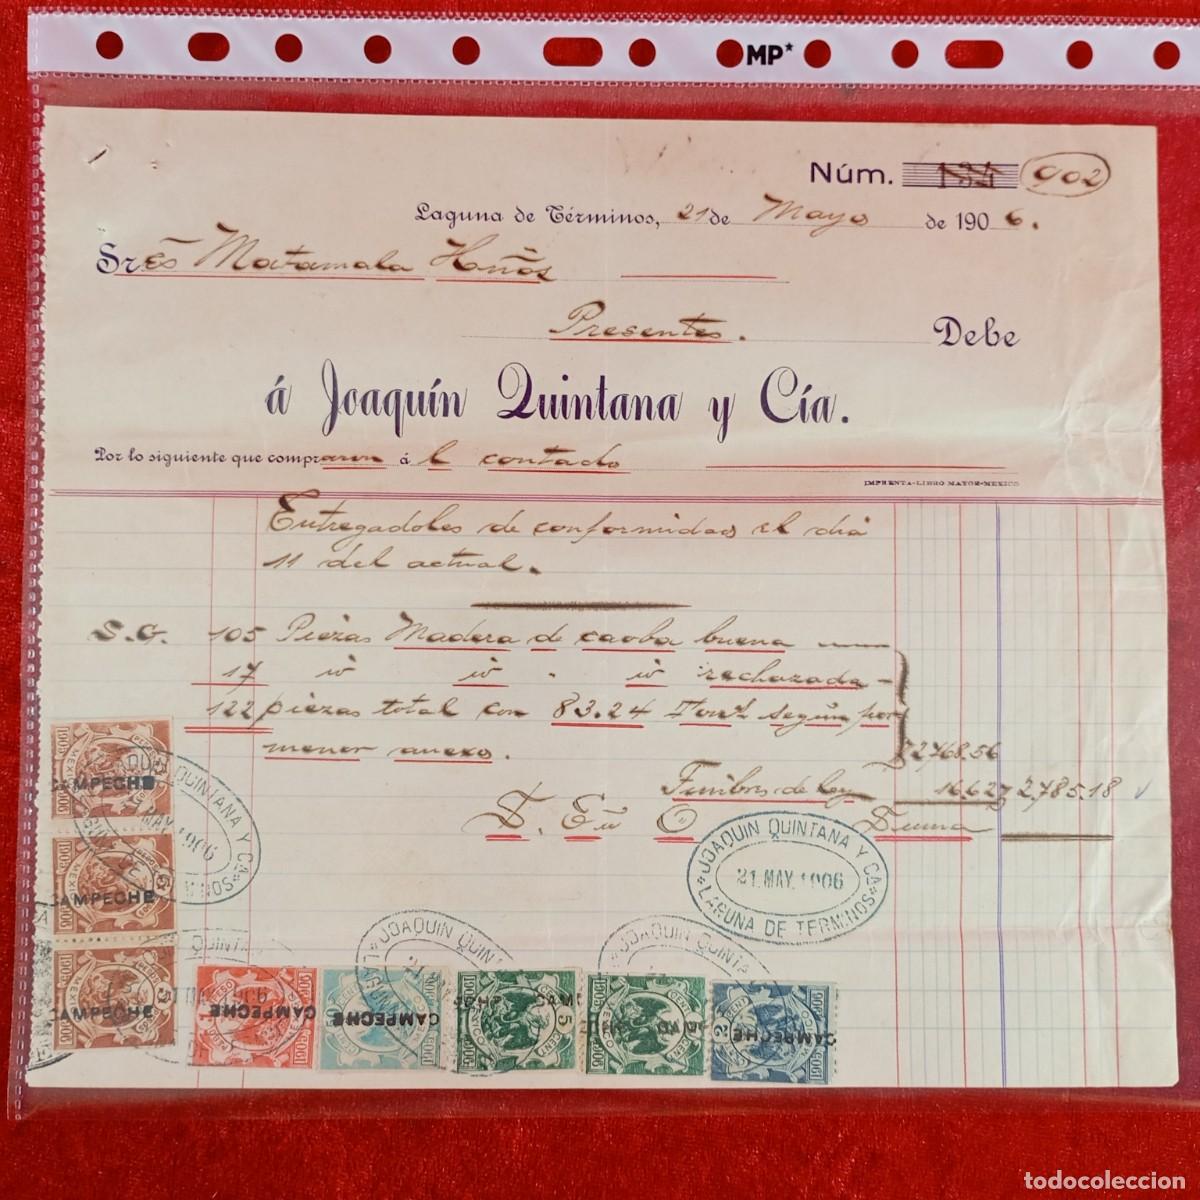 MP*
Núm. 134 902
Laguna de Términos, 21 de Mayo de 1906.
Sres Matamala Hños
Presentes. Debe
á Joaquín Quintana y Cía.
Por lo siguiente que compraron á l contado
IMPRENTA-LIBRO MAYOR-MEXICO
Entregadoles de conformidad el dia
11 del actual.
S.G. 105 Piezas Madera de caoba buena
17 id id . id rechazada
122 piezas total con 83.24 Tons según por
menor anexo. $2,768.56
Timbres de ley 16.62 2,785.18
S. E ú O Suma
JOAQUIN QUINTANA Y CA
21. MAY. 1906
LAGUNA DE TERMINOS
QUINTANA Y CA
MAY. 1906
CAMPECHE
CAMPECHE
CAMPECHE
QUINTANA
1906
CAMPECHE
JOAQUIN QUINTANA
CAMPECHE
5
JOAQUIN QUINTA
CAMPECHE
todocoleccion